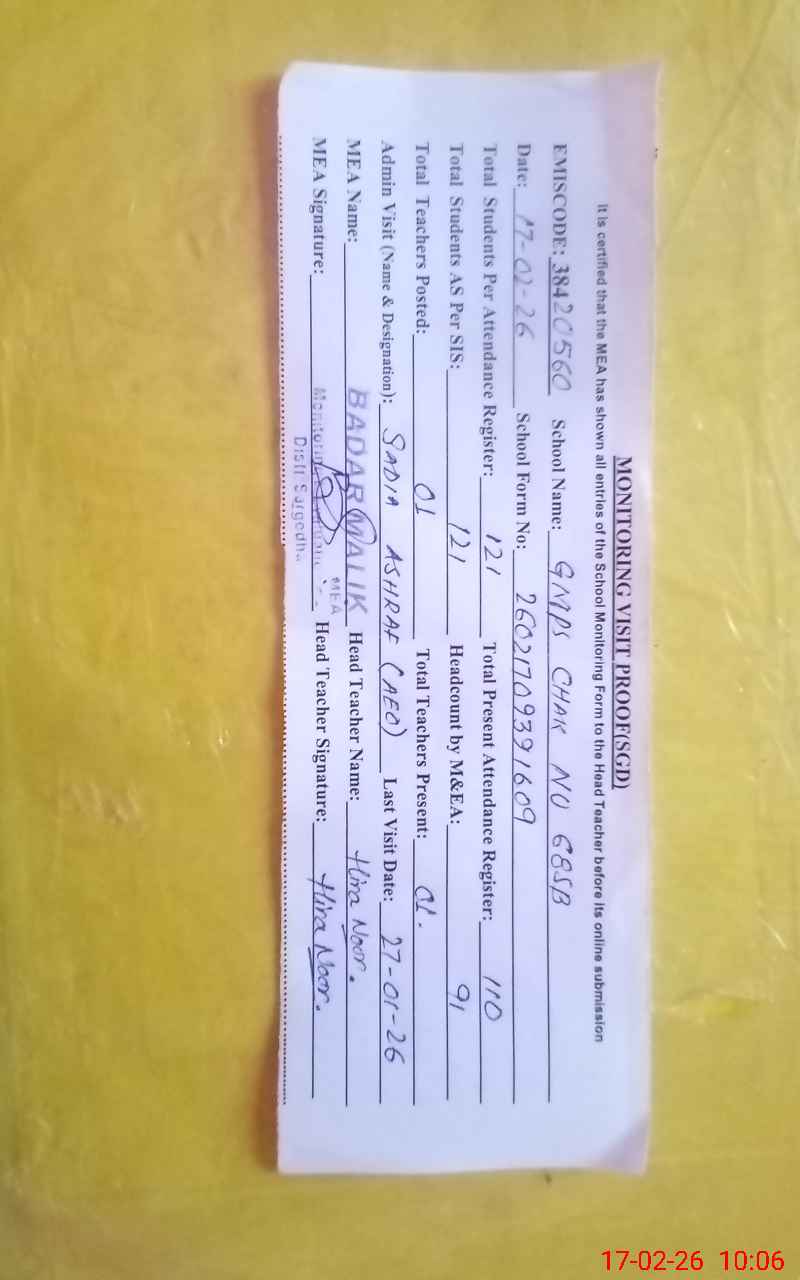 MONITORING VISIT PROOF(SGD)
It is certified that the MEA has shown all entries of the School Monitoring Form to the Head Teacher before its online submission
EMISCODE: 38420560 School Name: GMPS CHAK NO 68SB
Date: 17-02-26 School Form No: 26021709391609
Total Students Per Attendance Register: 121 Total Present Attendance Register: 110
Total Students AS Per SIS: 121 Headcount by M&EA: 91
Total Teachers Posted: 01 Total Teachers Present: 01.
Admin Visit (Name & Designation): SADIA ASHRAF (AEO) Last Visit Date: 27-01-26
MEA Name: BADAR MALIK Head Teacher Name: Hira Noor.
MEA
MEA Signature: Head Teacher Signature: Hira Noor.
Distt Sargodha
17-02-26 10:06